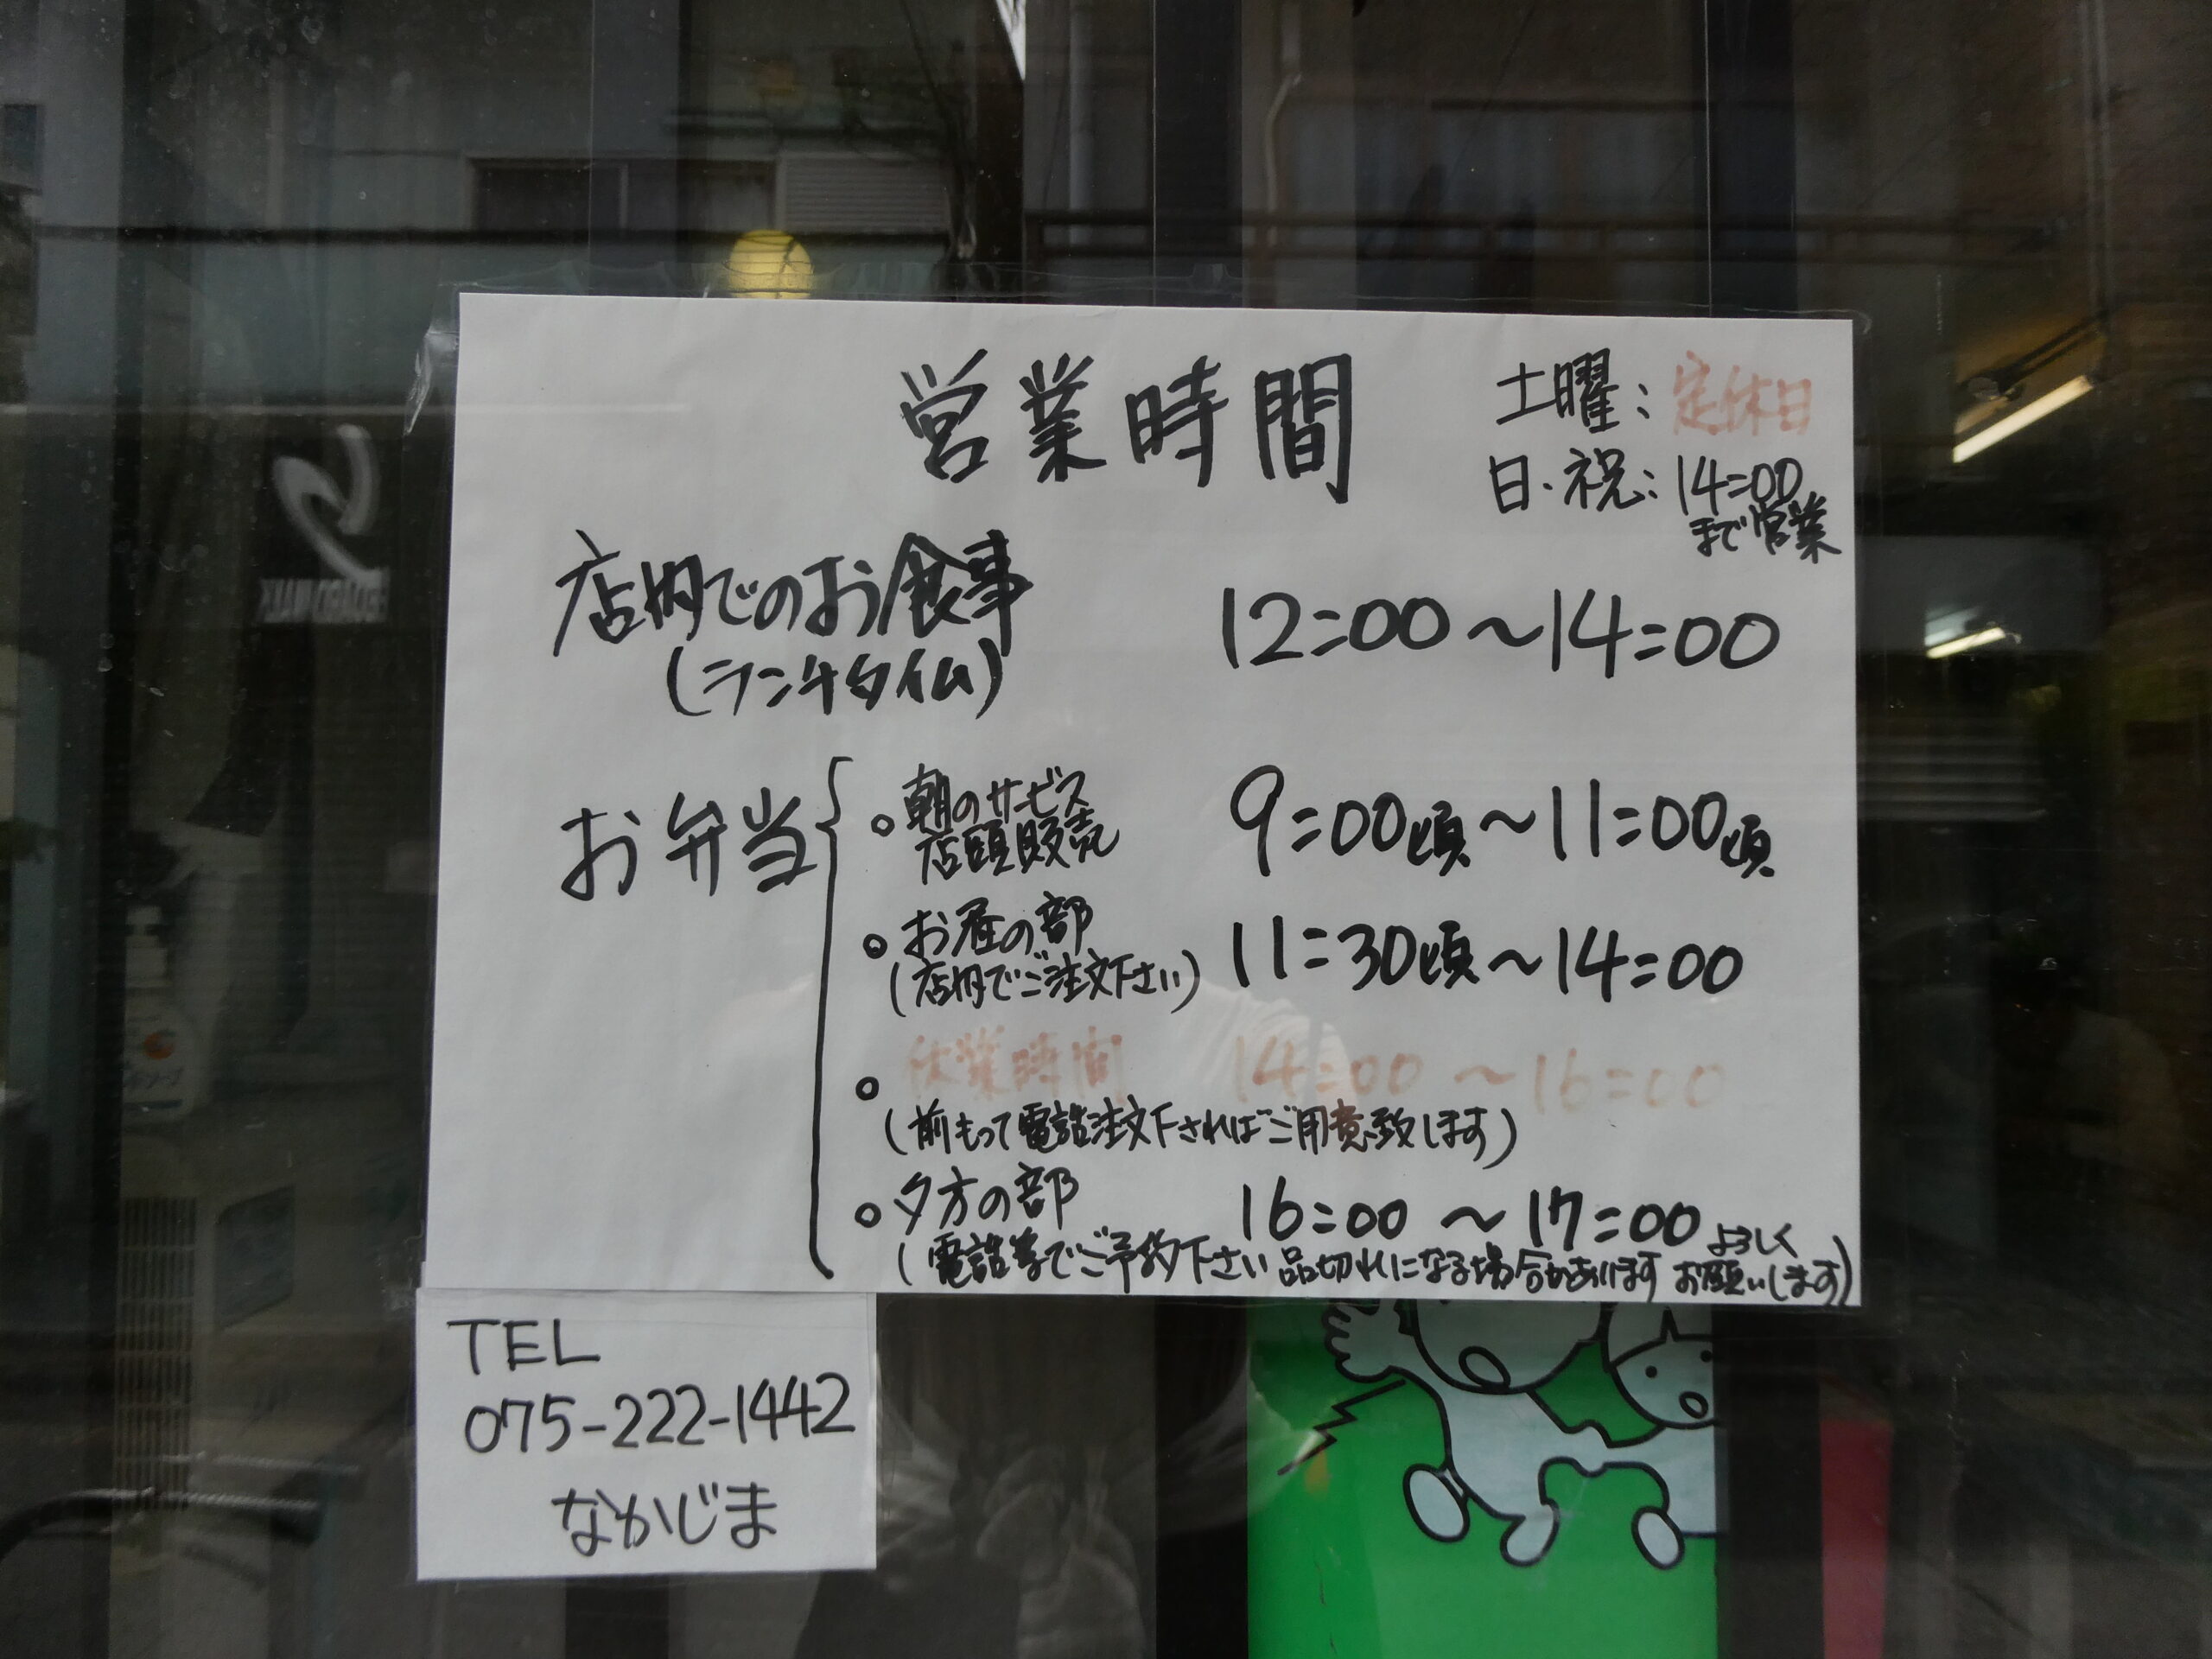 営業時間
土曜:定休日
日・祝:14:00
まで営業
店内でのお食事 12:00〜14:00
(ランチタイム)
お弁当
。朝のサービス 9:00頃〜11:00頃
店頭販売
。お昼の部 11:30頃〜14:00
(店内でご注文下さい)
。休業時間 14:00〜16:00
(前もって電話注文下さればご用意致します)
。夕方の部 16:00〜17:00
(電話等でご予約下さい 品切れになる場合があります よろしくお願いします)
TEL
075-222-1442
なかじま